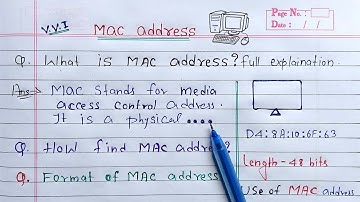 V.V.I
MAC address
Page No.:
Date: / /
Q. What is MAC address? full explaination.
Ans:- MAC Stands for media
access control address.
It is a physical ....
D4:8A:10:6F:63
Q. How find MAC address?
Length - 48 bits
Q. Format of MAC address
Use of MAC address